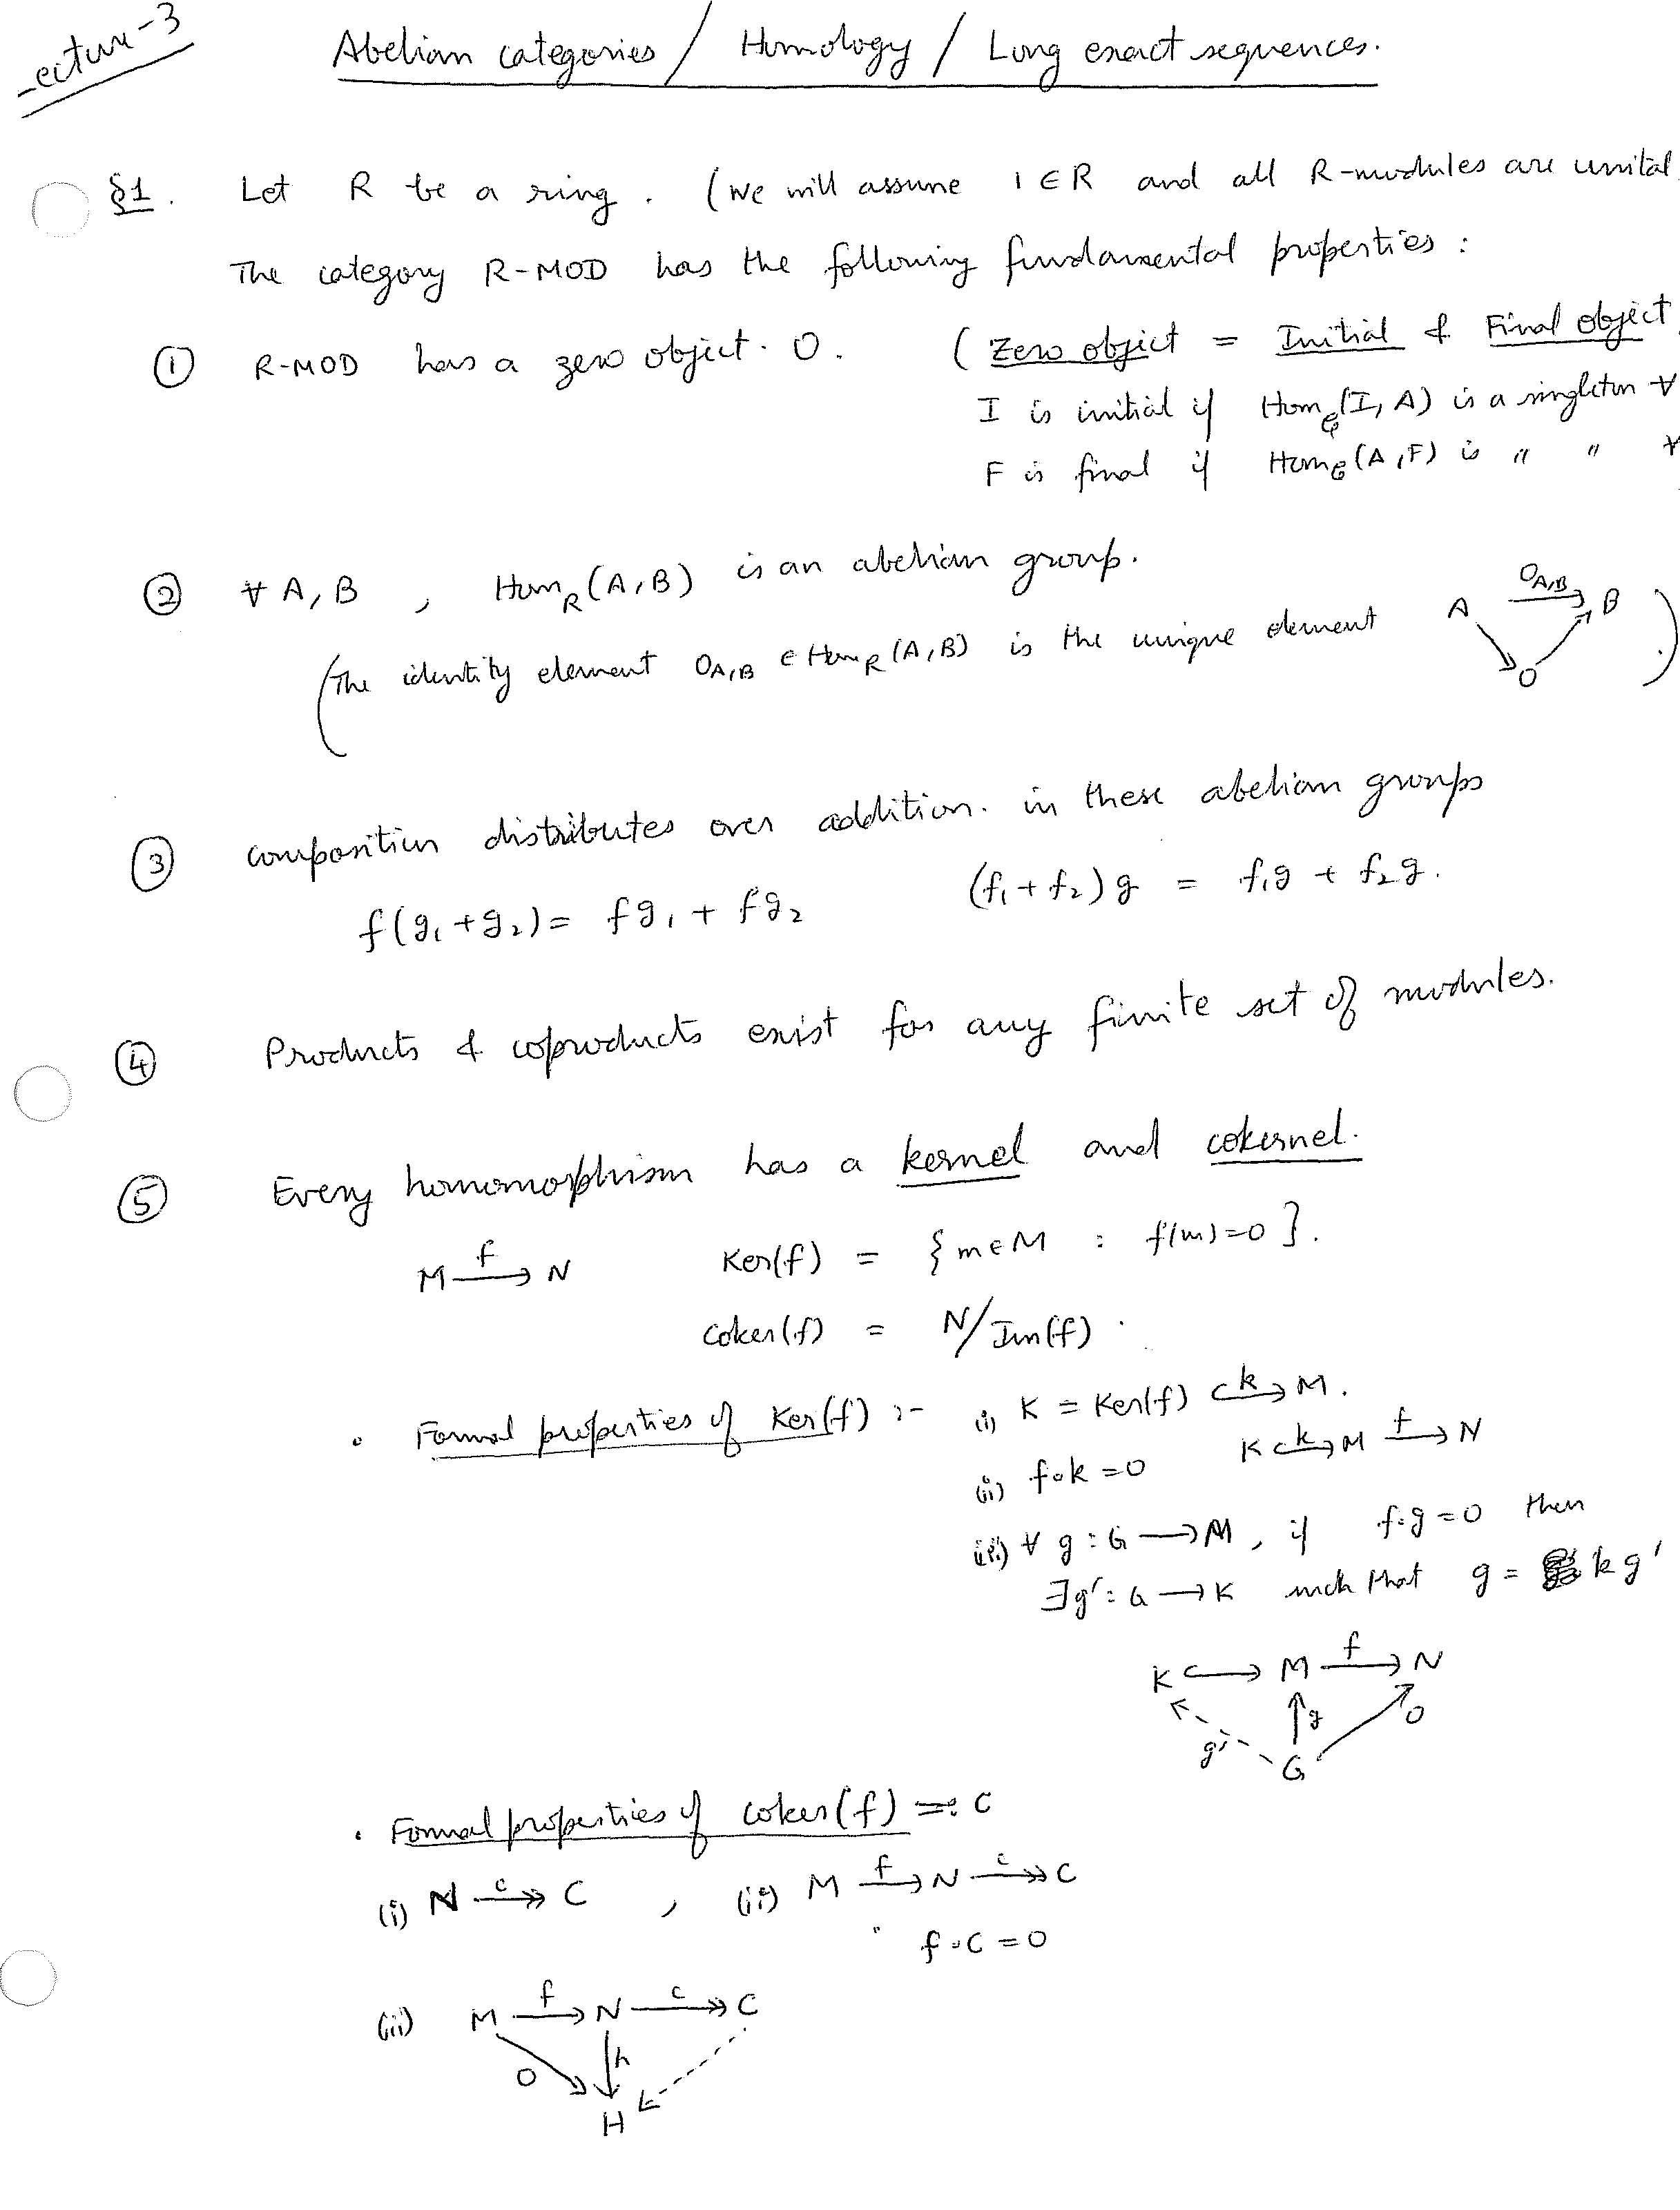 ecture-3
Abelian categories / Homology / Long exact sequences.
§1. Let R be a ring. (We will assume 1 ∈ R and all R-modules are unital
The category R-MOD has the following fundamental properties :
① R-MOD has a zero object. 0. ( Zero object = Initial & Final object.
I is initial if Hom_𝒞(I, A) is a singleton ∀
F is final if Hom_𝒞(A, F) is " " ∀
② ∀ A, B , Hom_R(A, B) is an abelian group.
(The identity element 0_{A,B} ∈ Hom_R(A, B) is the unique element A 0_{A,B} → B
0 )
③ Composition distributes over addition. in these abelian groups
f(g₁+g₂) = fg₁ + fg₂ (f₁+f₂)g = f₁g + f₂g.
④ Products & coproducts exist for any finite set of modules.
⑤ Every homomorphism has a kernel and cokernel.
M f→ N Ker(f) = {m∈M : f(m)=0}.
Coker(f) = N/Im(f).
• Formal properties of Ker(f) :- (i) K = Ker(f) k↪ M.
(ii) f∘k=0 K k↪ M f→ N
(iii) ∀ g : G → M, if f∘g=0 then
∃g' : G → K such that g = kg'
K ↪ M f→ N
g' g 0
G
• Formal properties of Coker(f) =: C
(i) N c↠ C , (ii) M f→ N c↠ C
f∘C=0
(iii) M f→ N c↠ C
0 h
H